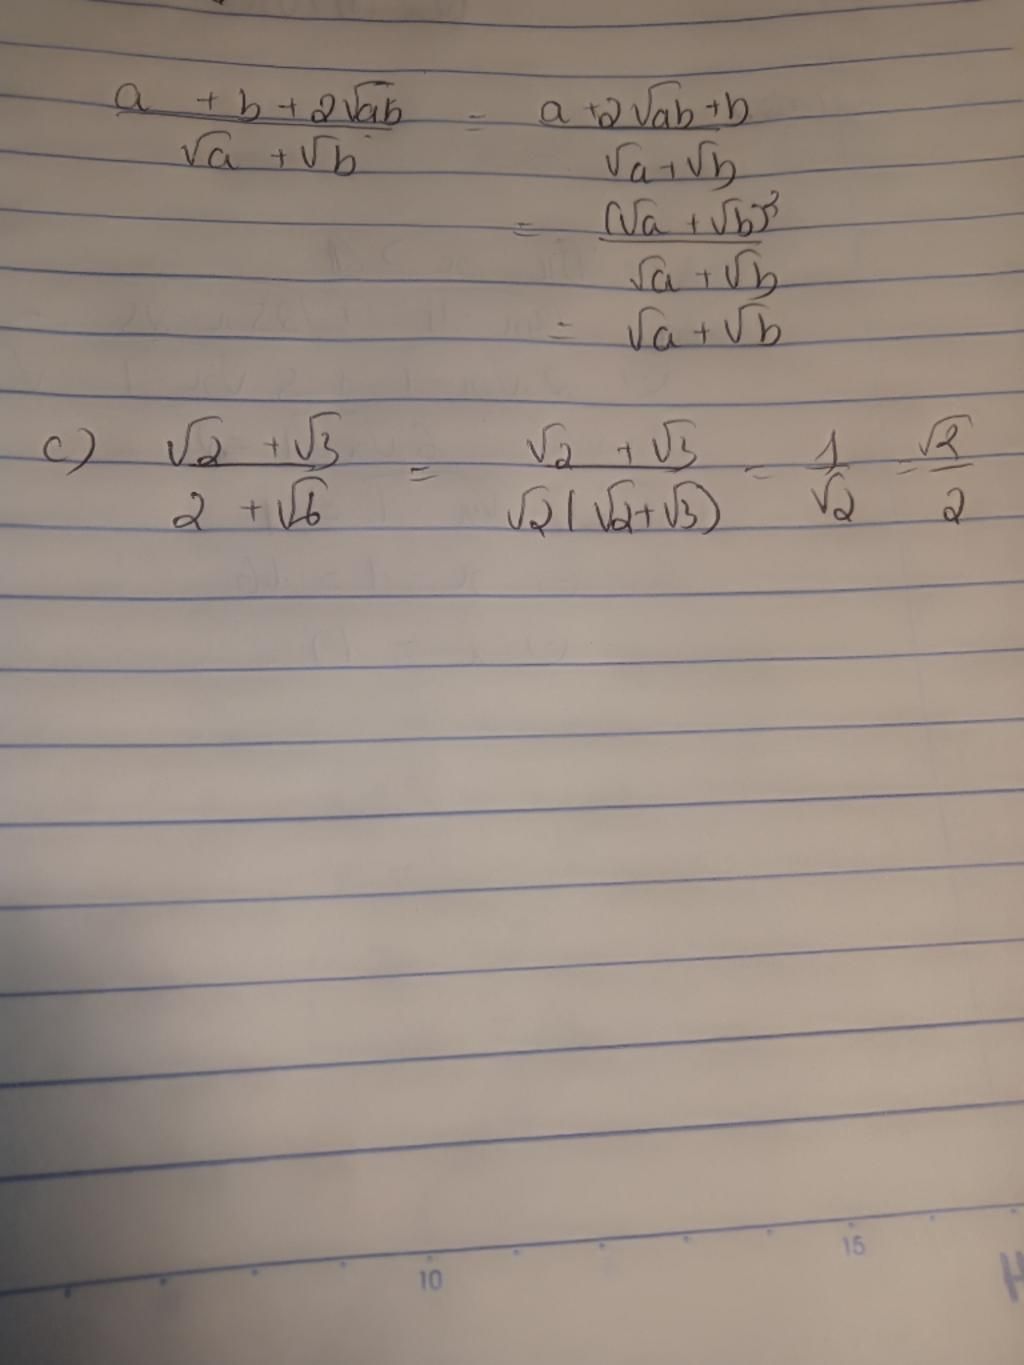 a + b + 2√ab / √a + √b = a + 2√ab + b / √a + √b
= (√a + √b)² / √a + √b
= √a + √b
c) √2 + √3 / 2 + √6 = √2 + √3 / √2(√2 + √3) = 1 / √2 = √2 / 2
10 15
H